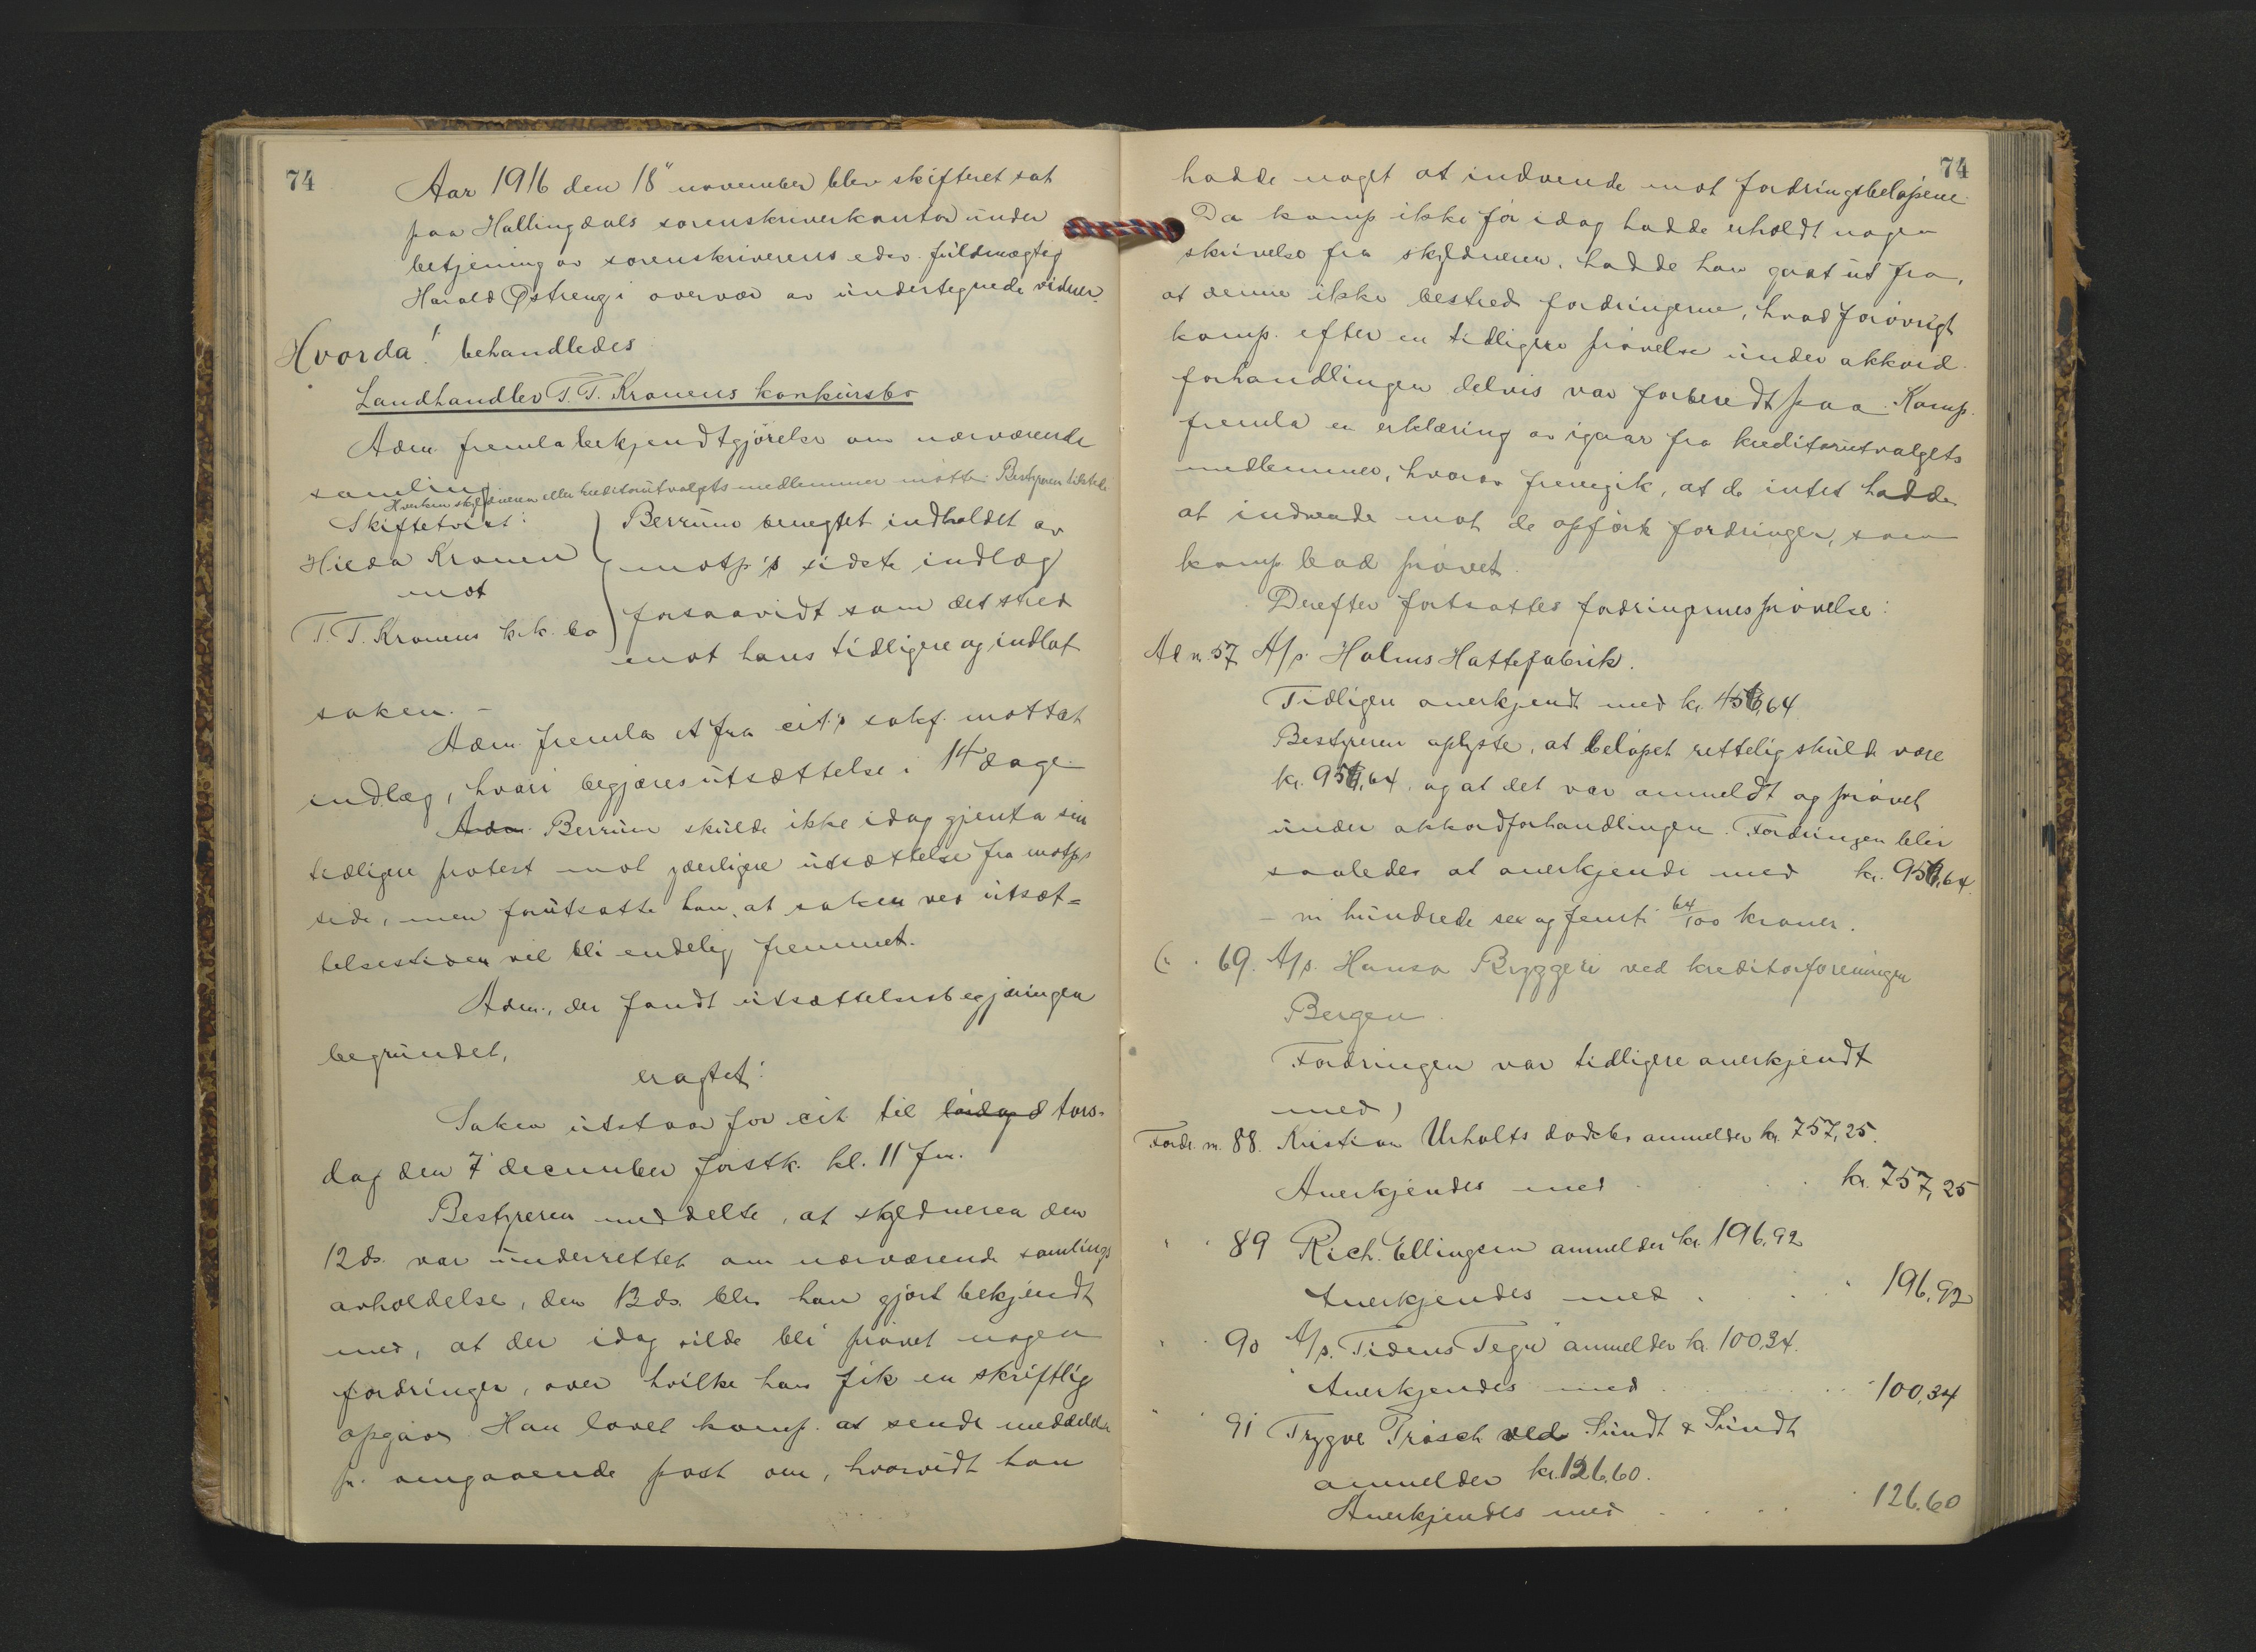 74
Aar 1916 den 18" november blev skifteret sat
paa Hallingdals sorenskriverkontor under
betjening av sorenskriverens edsv. fuldmægtig
Harald Østreng i overvær av undertegnede vidner.
Hvorda! behandledes
Landhandler T. T. Kronens konkursbo
Adm. fremla bekjendtgjørelse om nærværende
samling
Hverken skyldneren eller kreditorutvalgets medlemmer møtte. Bestyreren tilstede
Skiftetvist:
Hilda Kronen
mot
T. T. Kronens k.k. bo
Berrum benegtet indholdet av
motp's sidste indlæg
forsaavidt som det stred
mot hans tidligere og indlot
saken. –
Adm. fremla et fra cit's sakf. mottat
indlæg, hvori begjæres utsættelse i 14 dage
Adm. Berrum skulde ikke idag gjenta sin
tidligere protest mot yderligere utsættelse fra motp's
side, men forutsatte han, at saken ved utsæt=
telsestiden vil bli endelig fremmet.
Adm., der fandt utsættelsesbegjæringen
begrundet,
eragtet:
Saken utstaar for cit. til lørdag d tors-
dag den 7 december førstk. kl. 11 fm.
Bestyreren meddelte, at skyldneren den
12 ds. var underrettet om nærværende samlings
avholdelse, den 13 ds. blev han gjort bekjendt
med, at der idag vilde bli prøvet nogen
fordringer, over hvilke han fik en skriftlig
opgave. Han lovet komp. at sende meddelelse
pr. omgaaende post om, hvorvidt han
74
hadde noget at indvende mot fordringsbeløpene.
Da komp ikke før idag hadde erholdt nogen
skrivelse fra skyldneren, hadde han gaat ut fra,
at denne ikke bestred fordringerne, hvad forøvrigt
komp. efter en tidligere prøvelse under akkord
forhandlingen delvis var forberedt paa. Komp.
fremla en erklæring av igaar fra kreditorutvalgets
medlemmer, hvorav fremgik, at de intet hadde
at indvende mot de opførte fordringer, som
komp bad prøvet.
Derefter fortsattes fordringernes prøvelse:
Ad n. 57 A/s. Holms Hattefabrik.
Tidligere anerkjendt med kr. 456,64
Bestyreren oplyste, at beløpet rettelig skulde være
kr. 956,64, og at det var anmeldt og prøvet
under akkordforhandlingen. Fordringen blir
saaledes at anerkjende med kr. 956,64.
– ni hundrede sex og femti 64/100 kroner.
(" " 69. A/s. Hansa Bryggeri ved kreditorforeningen
Bergen.
Fordringen var tidligere anerkjendt
med)
Fordr. n. 88. Kristian Urholts dødsbo anmelder kr. 757,25.
Anerkjendes med . . . kr. 757,25
" " 89 Rich. Ellingsen anmelder kr. 196,92
Anerkjendes med . . " 196,92
" " 90 A/s. "Tidens Tegn" anmelder kr. 100,34.
Anerkjendes med . . . " 100,34
" " 91 Trygve Prøsch ved Sundt & Sundt
anmelder kr. 126,60.
Anerkjendes med . . . " 126,60